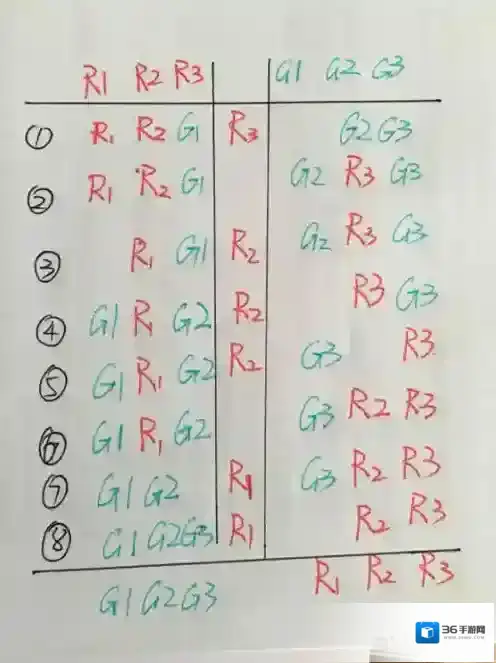 R1 R2 R3 G1 G2 G3
① R1 R2 G1 R3 G2 G3
② R1 R2 G1 G2 R3 G3
③ R1 G1 R2 G2 R3 G3
④ G1 R1 G2 R2 R3 G3
⑤ G1 R1 G2 R2 G3 R3
⑥ G1 R1 G2 G3 R2 R3
⑦ G1 G2 R1 G3 R2 R3
⑧ G1 G2 G3 R1 R2 R3
G1 G2 G3 R1 R2 R3
36手游网